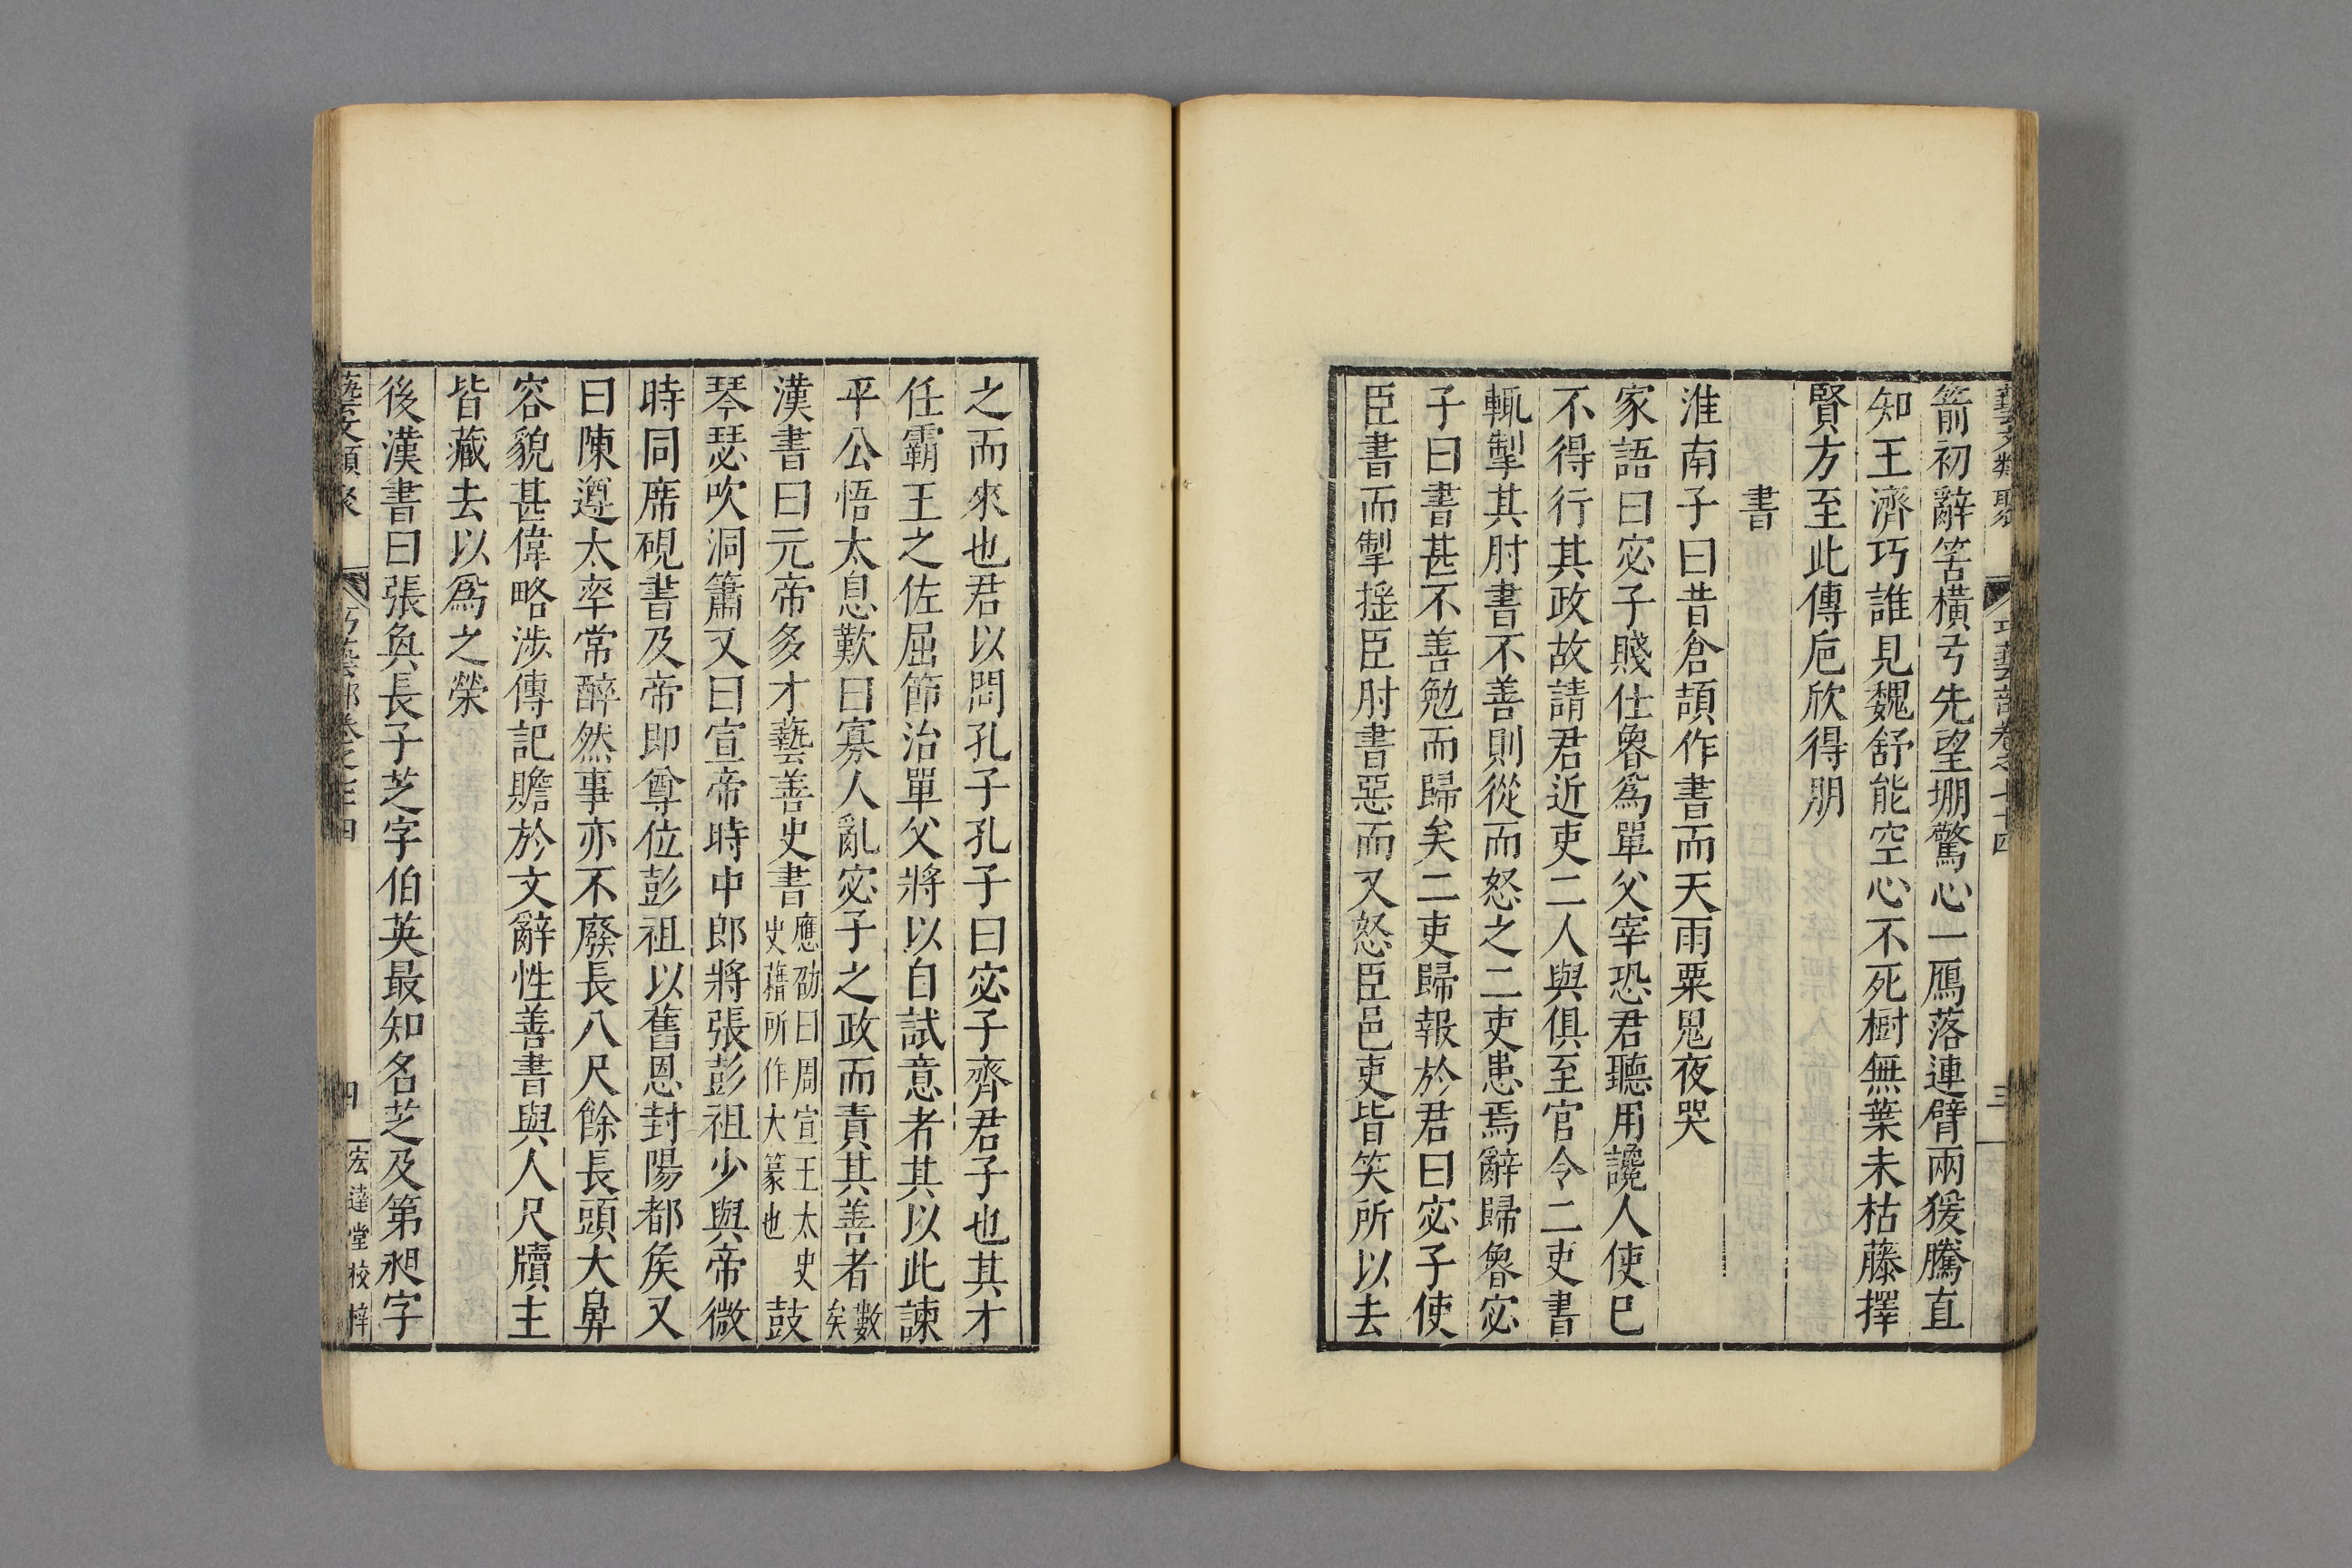 藝文類聚 巧藝部卷之七十四 三
箭初辭筈橫弓先望堋驚心一鴈落連臂兩猨騰直
知王濟巧誰見魏舒能空心不死樹無葉未枯藤擇
賢方至此傳巵欣得朋
書
淮南子曰昔倉頡作書而天雨粟鬼夜哭
家語曰宓子賤仕魯爲單父宰恐君聽用讒人使巳
不得行其政故請君近吏二人與俱至官令二吏書
輒掣其肘書不善則從而怒之二吏患焉辭歸魯宓
子曰書甚不善勉而歸矣二吏歸報於君曰宓子使
臣書而掣搖臣肘書惡而又怒臣邑吏皆笑所以去
之而來也君以問孔子孔子曰宓子齊君子也其才
任霸王之佐屈節治單父將以自試意者其以此諫
平公悟太息歎曰寡人亂宓子之政而責其善者數矣
漢書曰元帝多才藝善史書應劭曰周宣王太史史籒所作大篆也鼓
琴瑟吹洞簫又曰宣帝時中郎將張彭祖少與帝微
時同席硯書及帝即尊位彭祖以舊恩封陽都矦又
曰陳遵太率常醉然事亦不廢長八尺餘長頭大鼻
容貌甚偉略涉傳記贍於文辭性善書與人尺牘主
皆藏去以爲之榮
後漢書曰張奐長子芝字伯英最知名芝及第昶字
藝文類聚 巧藝部卷之七十四 四 宏達堂校梓